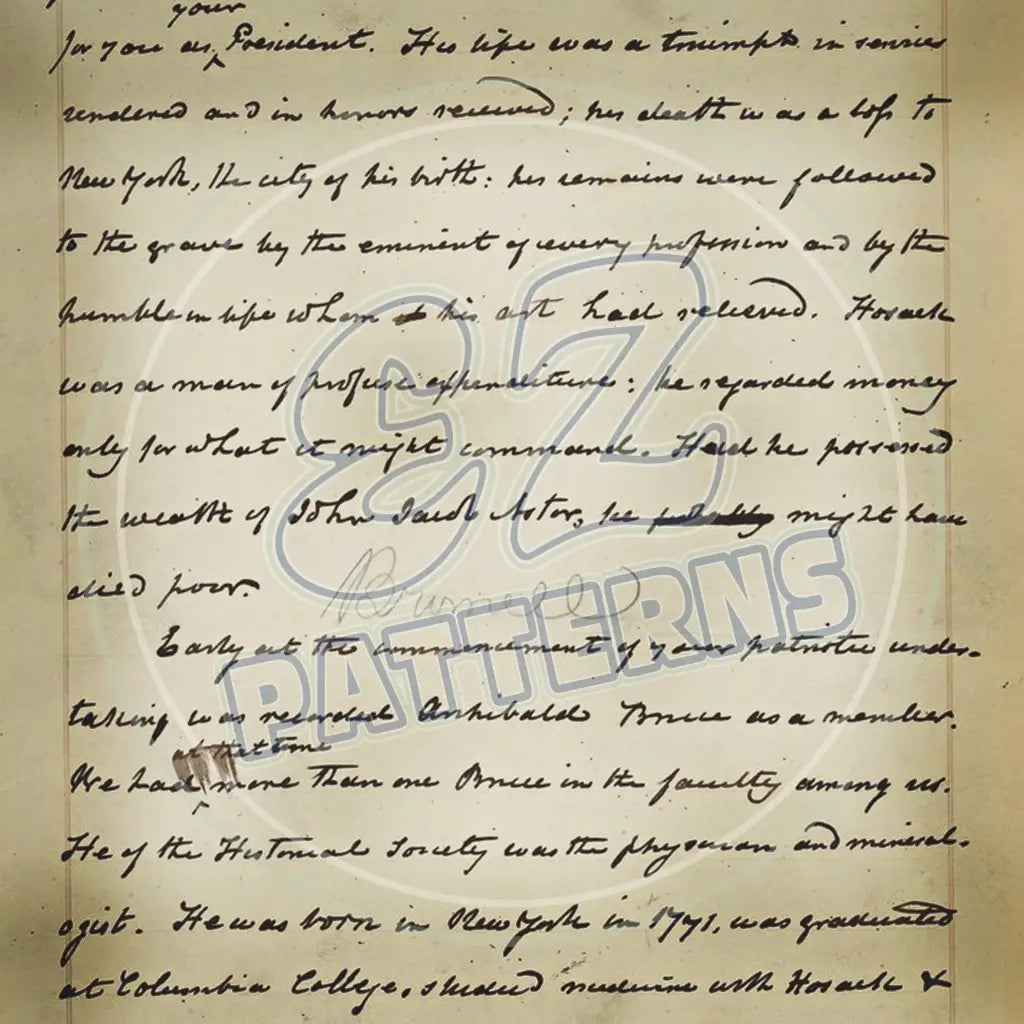 your
for you as President. His life was a triumph in services
rendered and in honors received; his death was a loss to
New York, the city of his birth: his remains were followed
to the grave by the eminent of every profession and by the
humble in life whom his art had relieved. Hosack
was a man of profuse expenditure: he regarded money
only for what it might command. Had he possessed
the wealth of John Jacob Astor, he might have
died poor.
EZ
PATTERNS
Early at the commencement of your patriotic under-
taking was recorded Archibald Bruce as a member.
at that time
We had more than one Bruce in the faculty among us.
He of the Historical Society was the physician and mineral-
ogist. He was born in New York in 1771, was graduated
at Columbia College, studied medicine with Hosack &